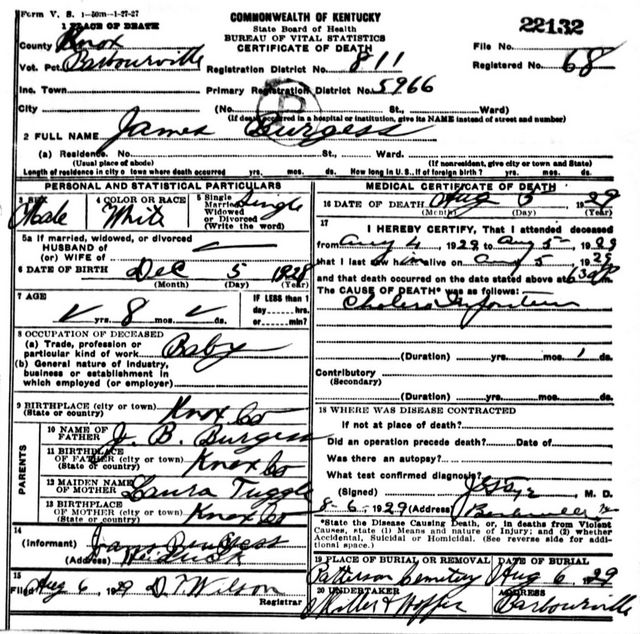 Form V. S. 1-50m-1-27-27
COMMONWEALTH OF KENTUCKY
State Board of Health
BUREAU OF VITAL STATISTICS
CERTIFICATE OF DEATH
22132
1 PLACE OF DEATH
County Knox
File No.
Vot. Pct. Barbourville
Registration District No. 811
Registered No. 68
Inc. Town
Primary Registration District No. 5966
City
(No. St., Ward)
(If death occurred in a hospital or institution, give its NAME instead of street and number)
B
2 FULL NAME James Burgess
(a) Residence. No. St., Ward.
(Usual place of abode) (If nonresident, give city or town and State)
Length of residence in city or town where death occurred yrs. mos. ds. How long in U.S., if of foreign birth? yrs. mos. ds.
PERSONAL AND STATISTICAL PARTICULARS
3 SEX
Male
4 COLOR OR RACE
White
5 Single
Married
Widowed
or Divorced
(Write the word)
Single
5a If married, widowed, or divorced
HUSBAND of
(or) WIFE of
6 DATE OF BIRTH Dec 5 1928
(Month) (Day) (Year)
7 AGE
yrs. 8 mos. ds.
IF LESS than 1
day ---- hrs.
or ---- min.
8 OCCUPATION OF DECEASED
(a) Trade, profession or
particular kind of work Baby
(b) General nature of industry,
business or establishment in
which employed (or employer)
9 BIRTHPLACE (city or town) Knox Co
(State or country)
PARENTS
10 NAME OF
FATHER J. B. Burgess
11 BIRTHPLACE
OF FATHER (city or town) Knox Co
(State or country)
12 MAIDEN NAME
OF MOTHER Laura Tuggle
13 BIRTHPLACE
OF MOTHER (city or town) Knox Co
(State or country)
14
(Informant) Burgess
(Address)
15
Filed Aug 6, 1929 D. T. Wilson
Registrar
MEDICAL CERTIFICATE OF DEATH
16 DATE OF DEATH Aug 5 1929
(Month) (Day) (Year)
17
I HEREBY CERTIFY, That I attended deceased
from Aug 4, 1929 to Aug 5 1929
that I last saw him alive on Aug 5, 1929
and that death occurred on the date stated above at
The CAUSE OF DEATH* was as follows:
Cholera Infantum
(Duration) yrs. mos. 1 ds.
Contributory
(Secondary)
(Duration) yrs. mos. ds.
18 WHERE WAS DISEASE CONTRACTED
If not at place of death?
Did an operation precede death? Date of
Was there an autopsy?
What test confirmed diagnosis?
(Signed) M. D.
8-6, 1929 (Address) Barbourville
*State the Disease Causing Death, or, in deaths from Violent
Causes, state (1) Means and nature of Injury; and (2) whether
Accidental, Suicidal or Homicidal. (See reverse side for addi-
tional space.)
19 PLACE OF BURIAL OR REMOVAL
Patterson Cemetery
DATE OF BURIAL
Aug 6 1929
20 UNDERTAKER
Miller & Hopper
ADDRESS
Barbourville